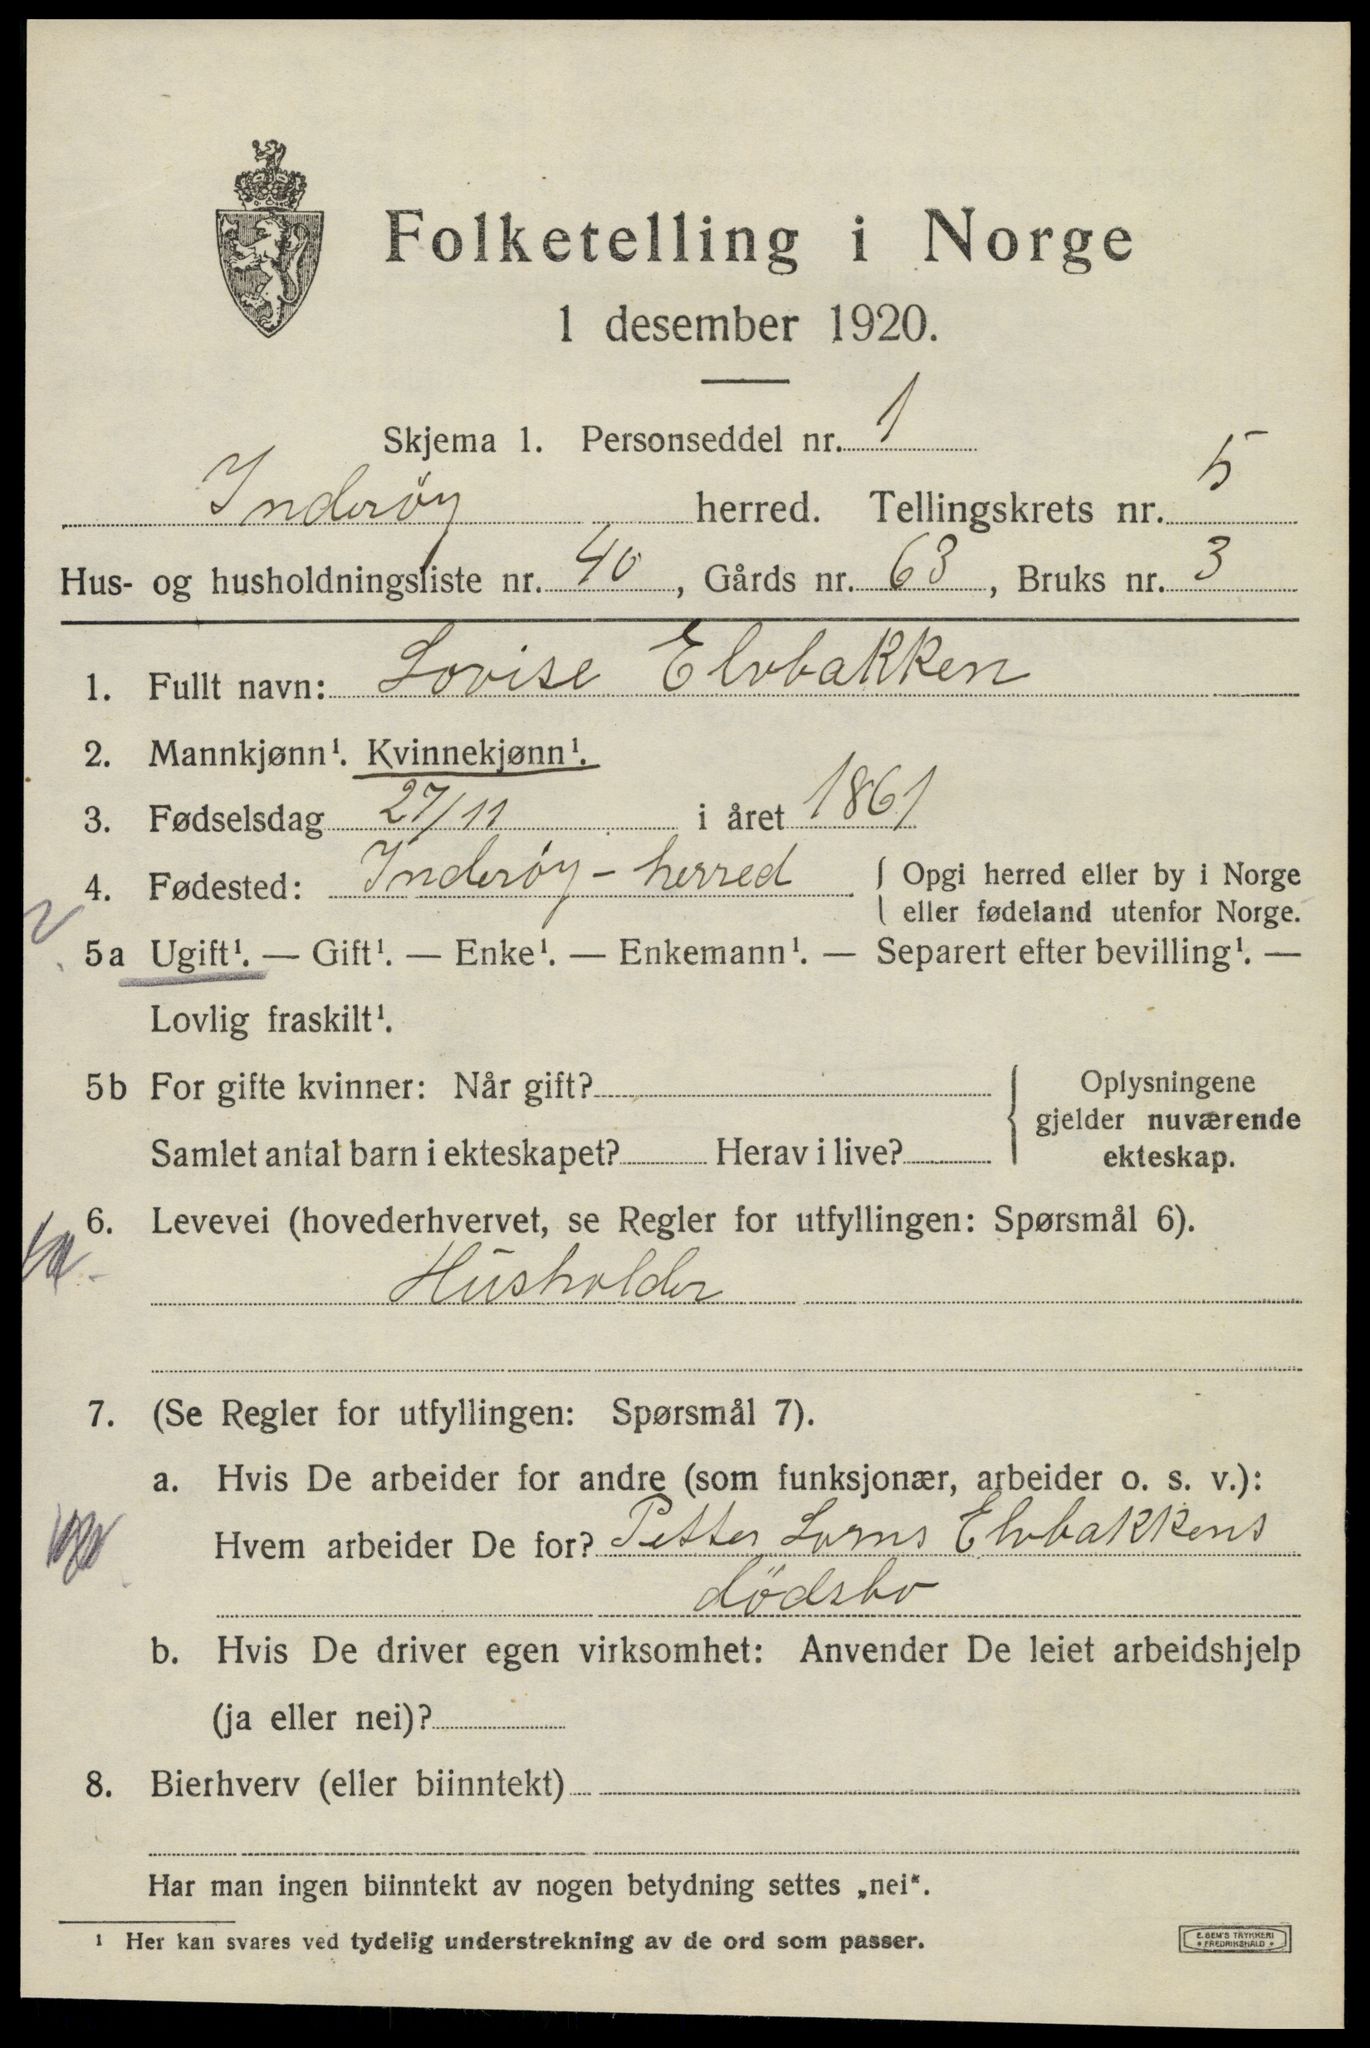 Folketelling i Norge
1 desember 1920.
Skjema 1. Personseddel nr. 1
Inderøy herred. Tellingskrets nr. 5
Hus- og husholdningsliste nr. 40, Gårds nr. 63, Bruks nr. 3
1. Fullt navn: Lovise Elvbakken
2. Mannkjønn¹. Kvinnekjønn¹.
3. Fødselsdag 27/11 i året 1861
4. Fødested: Inderöy-herred { Opgi herred eller by i Norge
eller fødeland utenfor Norge.
5a Ugift¹. — Gift¹. — Enke¹. — Enkemann¹. — Separert efter bevilling¹. —
Lovlig fraskilt¹.
5b For gifte kvinner: Når gift? { Oplysningene
gjelder nuværende
Samlet antal barn i ekteskapet? Herav i live? ekteskap.
6. Levevei (hovederhvervet, se Regler for utfyllingen: Spørsmål 6).
Husholder
7. (Se Regler for utfyllingen: Spørsmål 7).
a. Hvis De arbeider for andre (som funksjonær, arbeider o. s. v.):
Hvem arbeider De for? Petter Lorns Elvbakkens
dödsbo
b. Hvis De driver egen virksomhet: Anvender De leiet arbeidshjelp
(ja eller nei)?
8. Bierhverv (eller biinntekt)
Har man ingen biinntekt av nogen betydning settes „nei".
¹ Her kan svares ved tydelig understrekning av de ord som passer.
E. SEM'S TRYKKERI
• FREDRIKSHALD •